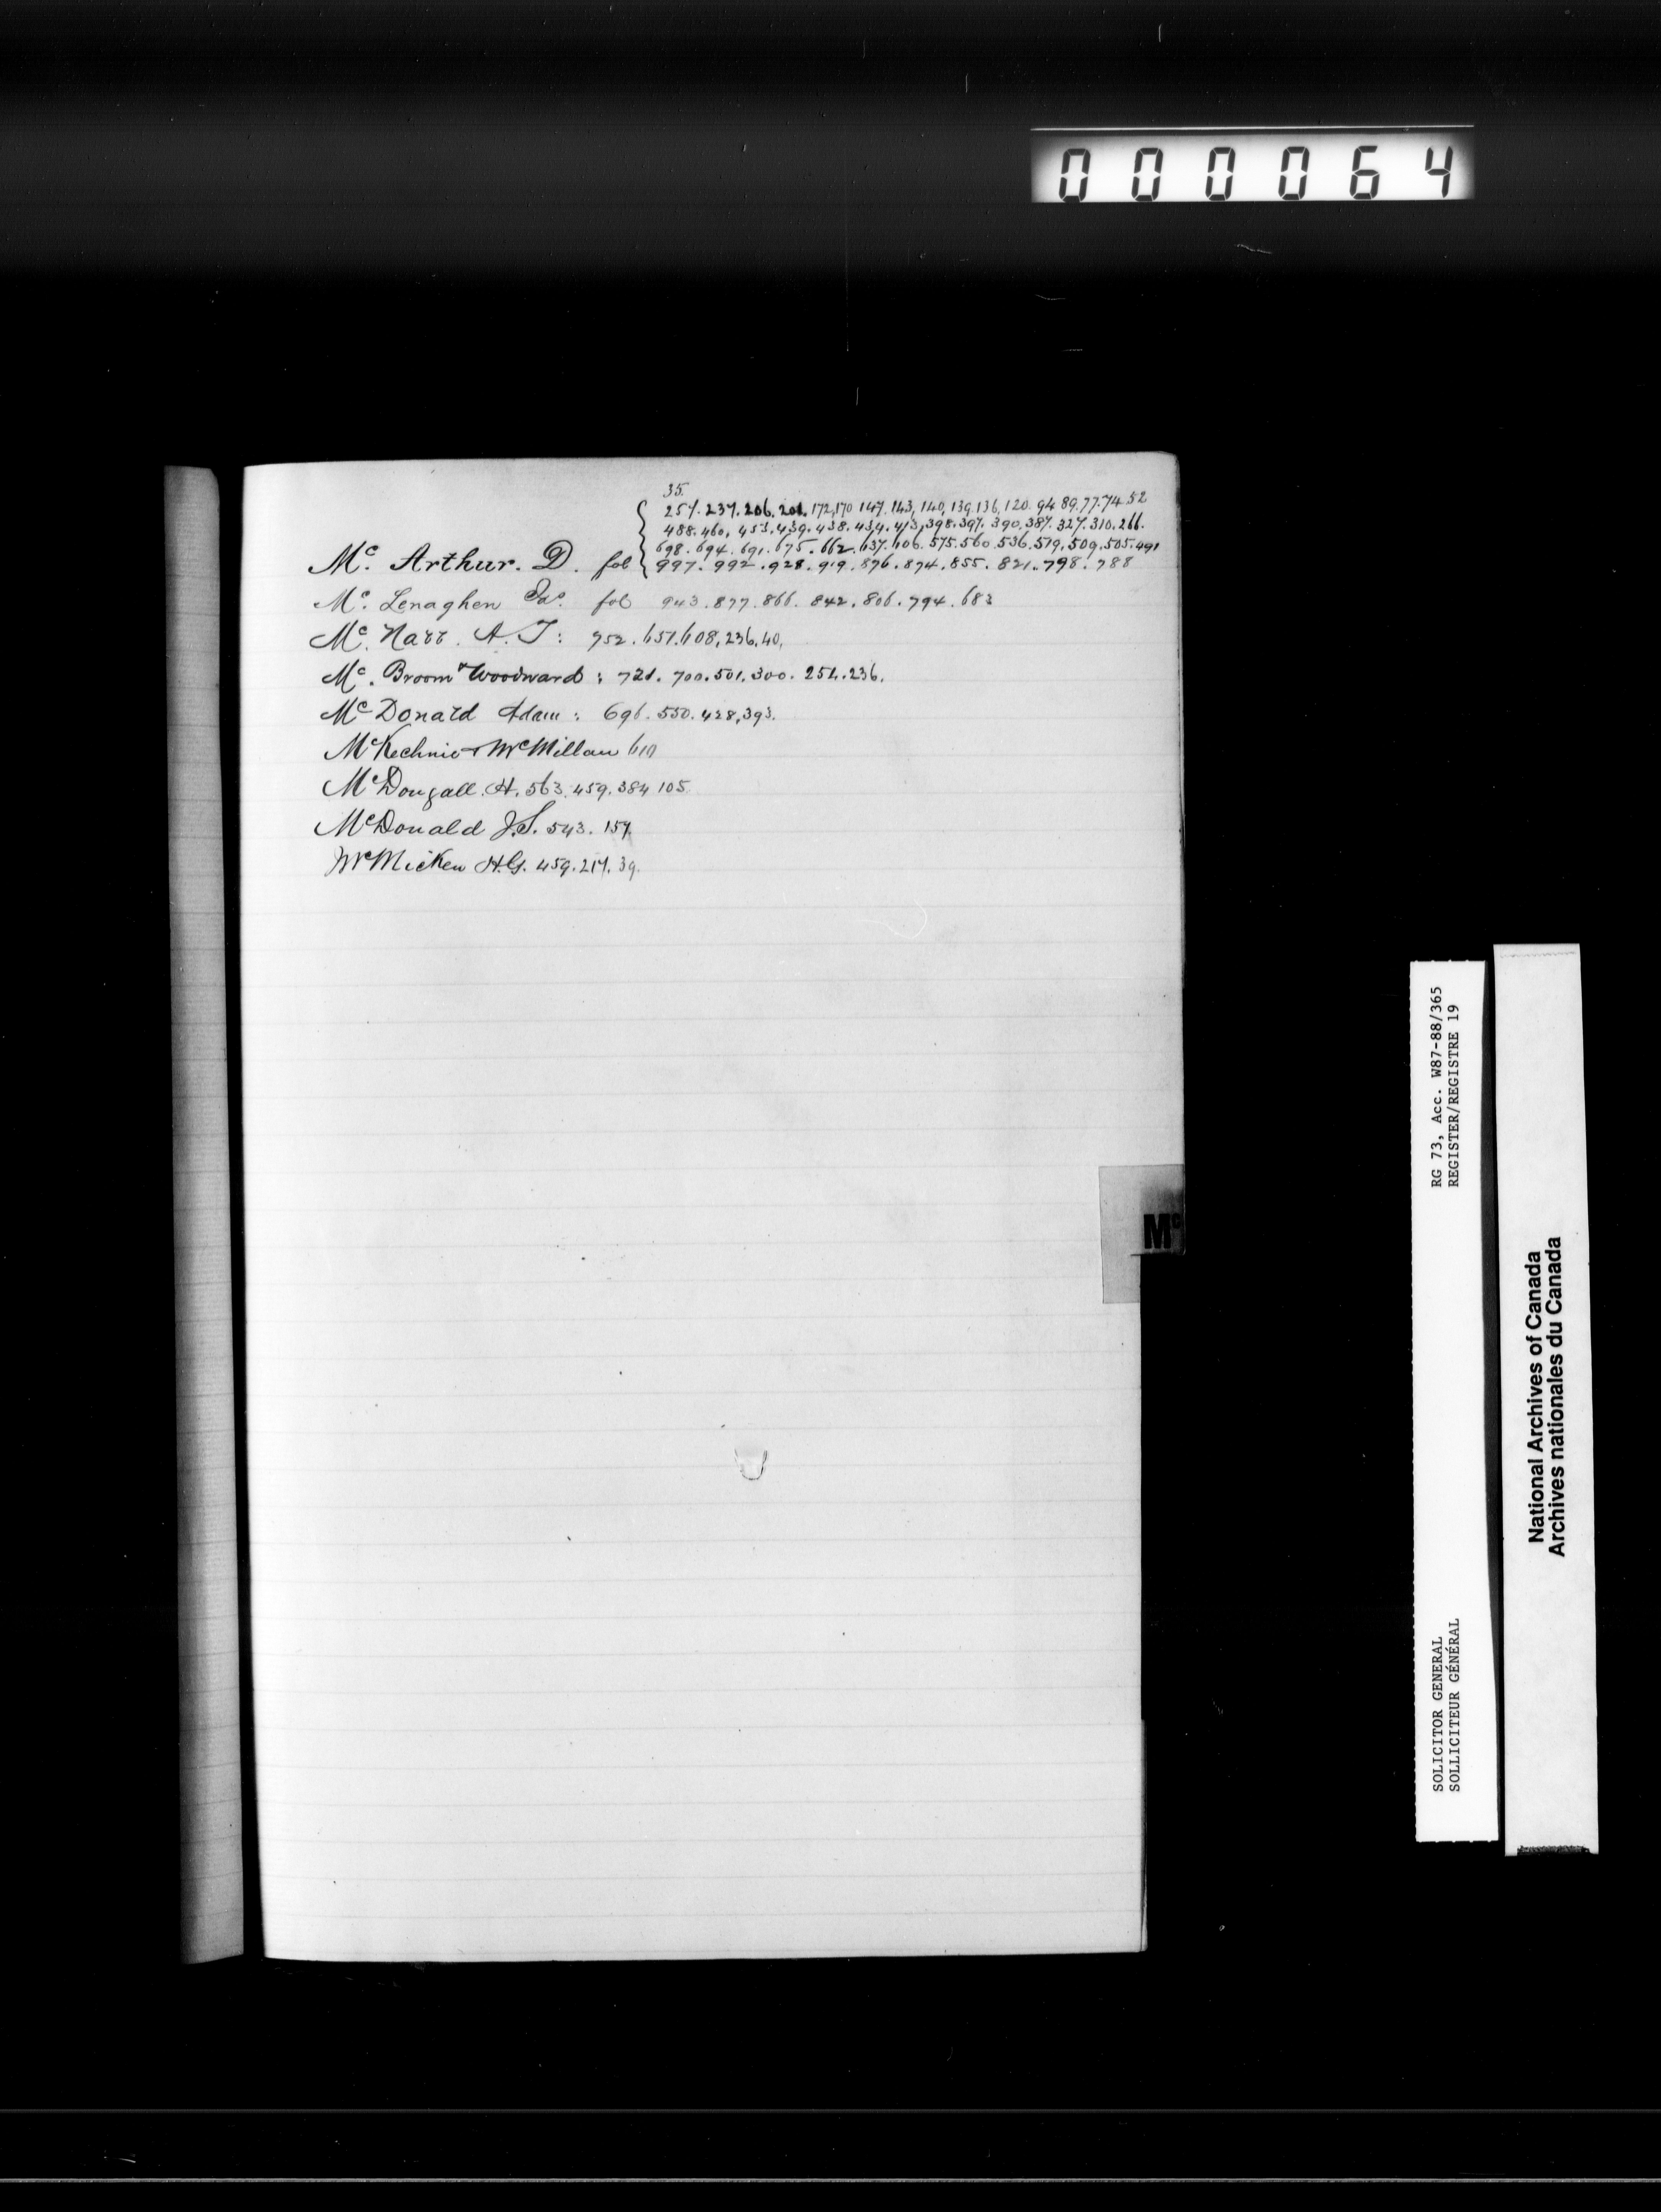 000064
35.
257. 237. 206. 201. 172, 170 147. 143, 140, 139. 136, 120. 94 89. 77. 74. 52
488. 460, 453. 439. 438. 434. 413, 398. 397. 390. 387. 327. 310. 266.
698. 694. 691. 675. 662. 637. 606. 575. 560. 536. 519. 509. 505. 491
Mc. Arthur. D. fol 997. 992. 928. 919. 876. 874. 855. 821. 798. 788
Mc. Lenaghen Jas. fol 943. 877. 866. 842. 806. 794. 683
Mc. Nabb. A. T: 752. 657. 608, 236. 40,
Mc. Broom & Woodward: 721. 700. 501. 300. 254. 236.
Mc Donald Adam: 696. 550. 428, 393.
McKechnie & McMillan 610
McDougall. H. 563. 459. 384 105.
McDonald J.S. 543. 157.
McMicken H.G. 459. 217. 39.
Mc
RG 73, Acc. W87-88/365
REGISTER/REGISTRE 19
SOLICITOR GENERAL
SOLLICITEUR GÉNÉRAL
National Archives of Canada
Archives nationales du Canada